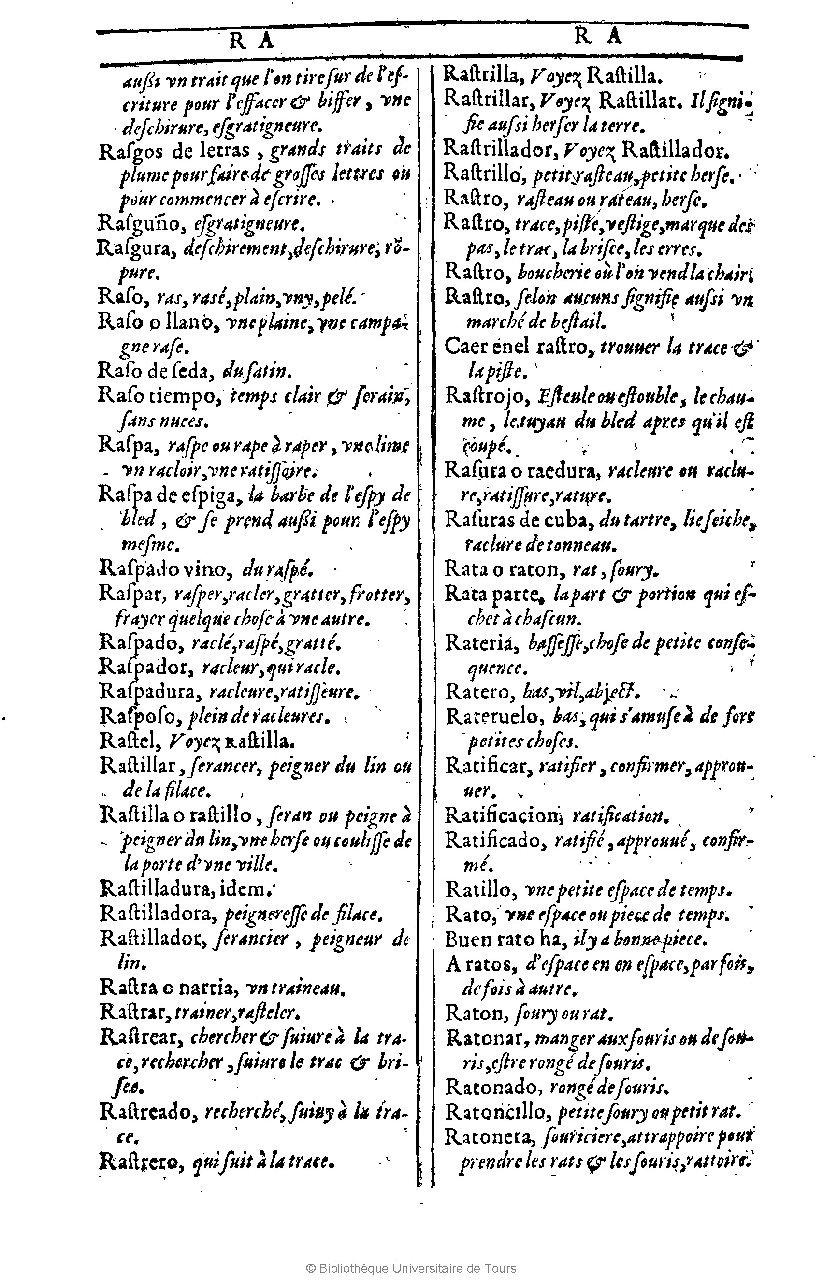 R A
auſſi vn trait que l'on tire ſur de l'eſ-
criture pour l'effacer & biffer, vne
deſchirure, eſgratigneure.
Raſgos de letras, grands traits de
plume pour faire de groſſes lettres ou
pour commencer à eſcrire.
Raſguño, eſgratigneure.
Raſgura, deſchirement, deſchirure, rõ-
pure.
Raſo, ras, rasé, plain, vny, pelé.
Raſo o llano, vne plaine, vne campa-
gne raſe.
Raſo de ſeda, du ſatin.
Raſo tiempo, temps clair & ſerain,
ſans nuees.
Raſpa, raſpe ou rape à raper, vne lime
vn racloir, vne ratiſſoire.
Raſpa de eſpiga, la barbe de l'eſpy de
bled, & ſe prend auſſi pour l'eſpy
meſme.
Raſpado vino, du raſpé.
Raſpar, raſper, racler, gratter, frotter,
frayer quelque choſe à vne autre.
Raſpado, raclé, raſpé, gratté.
Raſpador, racleur, qui racle.
Raſpadura, racleure, ratiſſeure.
Raſpoſo, plein de racleures.
Raſtel, Voyez Raſtilla.
Raſtillar, ſerancer, peigner du lin ou
de la filace.
Raſtilla o raſtillo, ſeran ou peigne à
peigner du lin, vne herſe ou couliſſe de
la porte d'vne ville.
Raſtilladura, idem.
Raſtilladora, peignereſſe de filace.
Raſtillador, ſerancier, peigneur de
lin.
Raſtra o narria, vn traineau.
Raſtrar, trainer, raſteler.
Raſtrear, chercher & ſuiure à la tra-
ce, rechercher, ſuiure le trac & bri-
ſee.
Raſtreado, recherché, ſuiuy à la tra-
ce.
Raſtrero, qui ſuit à la trace.
R A
Raſtrilla, Voyez Raſtilla.
Raſtrillar, Voyez Raſtillar. Il ſigni-
fie auſſi herſer la terre.
Raſtrillador, Voyez Raſtillador.
Raſtrillo, petit raſteau, petite herſe.
Raſtro, raſteau ou rateau, herſe.
Raſtro, trace, piſte, veſtige, marque des
pas, le trac, la briſee, les erres.
Raſtro, boucherie où l'on vend la chair.
Raſtro, ſelon aucuns ſignifie auſſi vn
marché de beſtail.
Caer en el raſtro, trouuer la trace &
la piſte.
Raſtrojo, Eſteule ou eſtouble, le chau-
me, le tuyau du bled apres qu'il eſt
coupé.
Raſura o raedura, racleure ou raclu-
re, ratiſſure, rature.
Raſuras de cuba, du tartre, lie ſeiche,
raclure de tonneau.
Rata o raton, rat, ſoury.
Rata parte, la part & portion qui eſ-
chet à chaſcun.
Rateria, baſſeſſe, choſe de petite conſe-
quence.
Ratero, bas, vil, abject.
Rateruelo, bas, qui s'amuſe à de fort
petites choſes.
Ratificar, ratifier, confirmer, approu-
uer.
Ratificacion, ratification.
Ratificado, ratifié, approuué, confir-
mé.
Ratillo, vne petite eſpace de temps.
Rato, vne eſpace ou piece de temps.
Buen rato ha, il y a bonne piece.
A ratos, d'eſpace en en eſpace, par fois,
de fois à autre.
Raton, ſoury ou rat.
Ratonar, manger aux ſouris ou de ſou-
ris, eſtre rongé de ſouris.
Ratonado, rongé de ſouris.
Ratoncillo, petite ſoury ou petit rat.
Ratonera, ſouriciere, attrappoire pour
prendre les rats & les ſouris, rattoire.
© Bibliothèque Universitaire de Tours